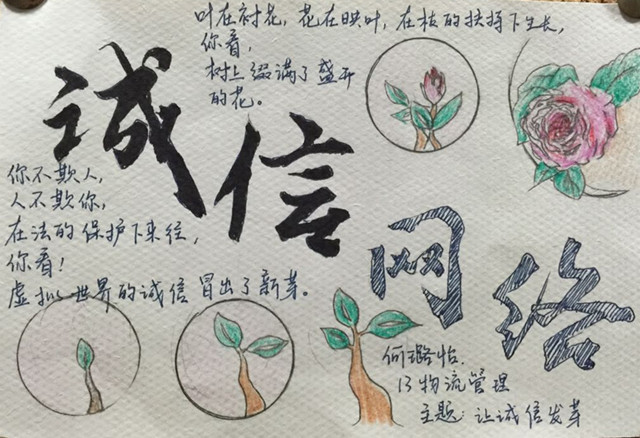 叶在衬花，花在映叶，在枝的扶持下生长，
你看，
树上缀满了盛开
的花。
诚信
你不欺人，
人不欺你，
在法的保护下来往，
你看！
虚拟世界的诚信冒出了新芽。
网络
何璐怡.
13物流管理
主题：让诚信发芽